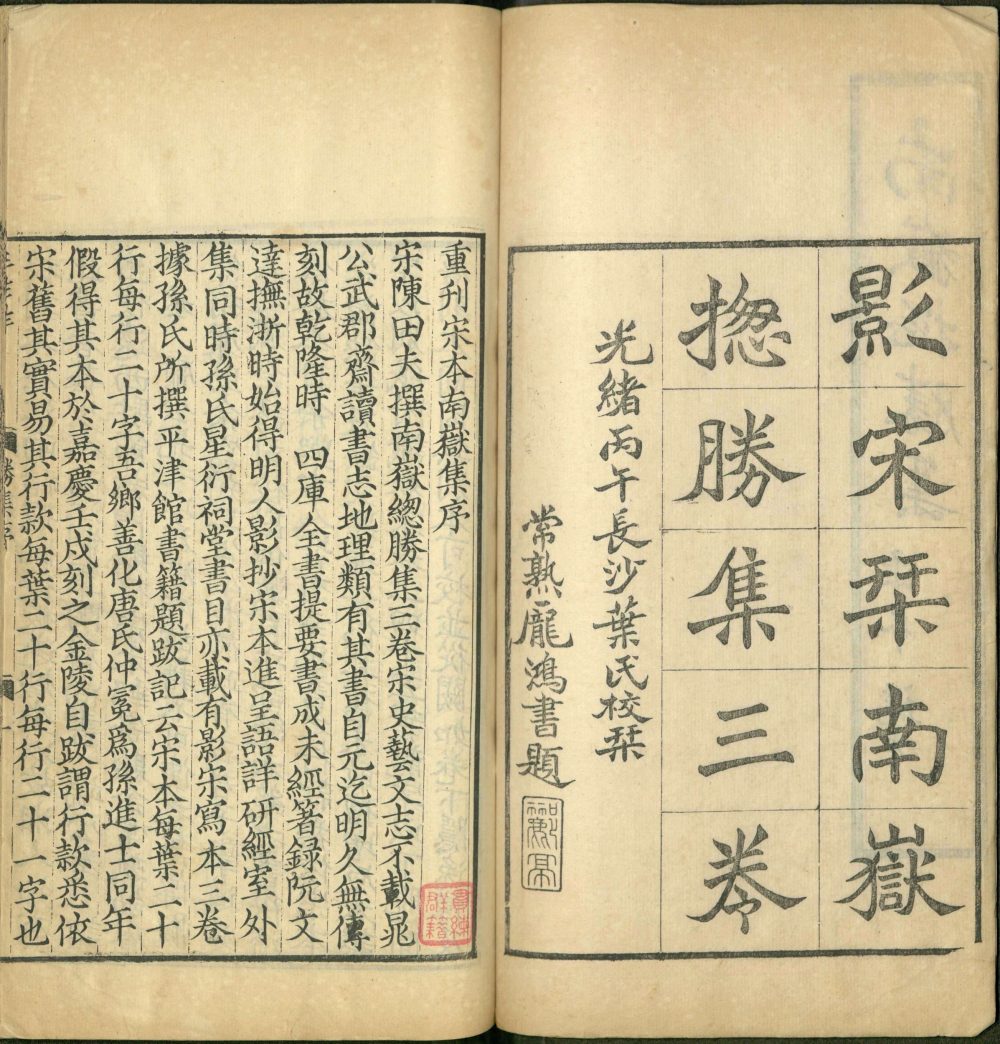 影宋栞南嶽
揔勝集三卷
光緒丙午長沙葉氏校栞
常熟龐鴻書題
重刊宋本南嶽集序
宋陳田夫撰南嶽總勝集三卷宋史藝文志不載晁
公武郡齋讀書志地理類有其書自元迄明久無傳
刻故乾隆時 四庫全書提要書成未經著録阮文
達撫浙時始得明人影抄宋本進呈語詳研經室外
集同時孫氏星衍祠堂書目亦載有影宋寫本三卷
據孫氏所撰平津館書籍題跋記云宋本每葉二十
行每行二十字吾鄉善化唐氏仲冕爲孫進士同年
假得其本於嘉慶壬戌刻之金陵自跋謂行款悉依
宋舊其實易其行款每葉二十行每行二十一字也
勝集序
一